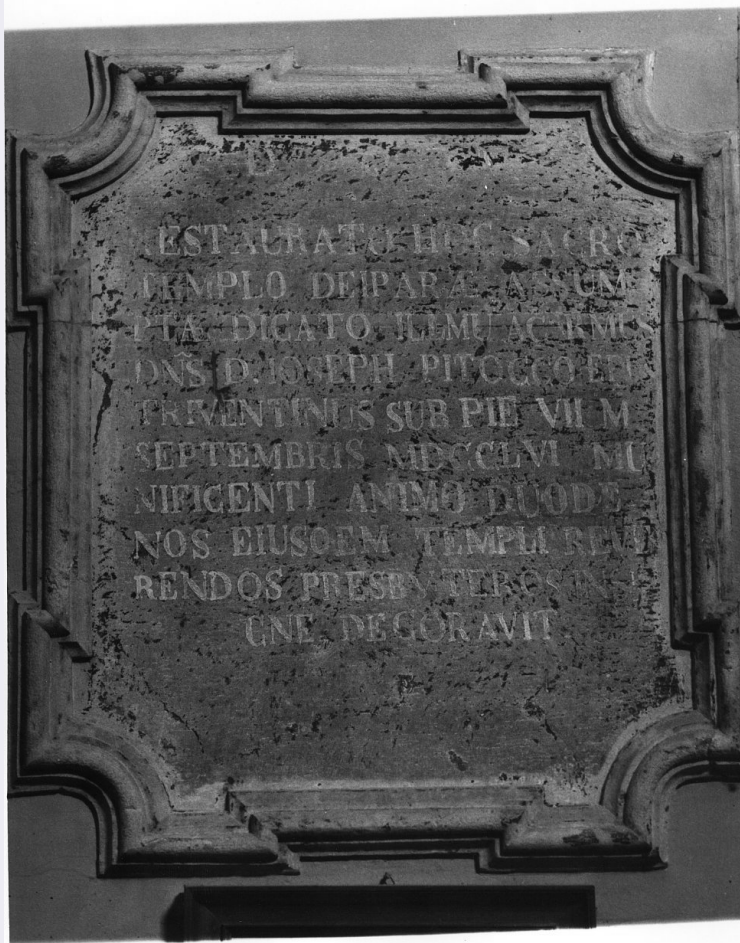 RESTAURATO HOC SACRO
TEMPLO DEIPARÆ ASSUM
PTÆ DICATO ILLMU AC RMUS
DNS D. IOSEPH PITOCCO EPUS
TRIVENTINUS SUB DIE VII M
SEPTEMBRIS MDCCLVI MU
NIFICENTI ANIMO DUODE
NOS EIUSDEM TEMPLI REVE
RENDOS PRESBYTEROS INSI
GNE DECORAVIT